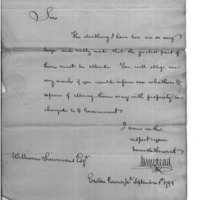 Sir
The clothing I have here are so very
large and badly made that the greatest part of
them must be altered. You will oblige me
very much if you would inform me whether the
expence of altering them may with propriety be
charged to Government
I am with
respect your
humble Servant
William Simmons Esqr
Easton Pennsylva September 5th 1798